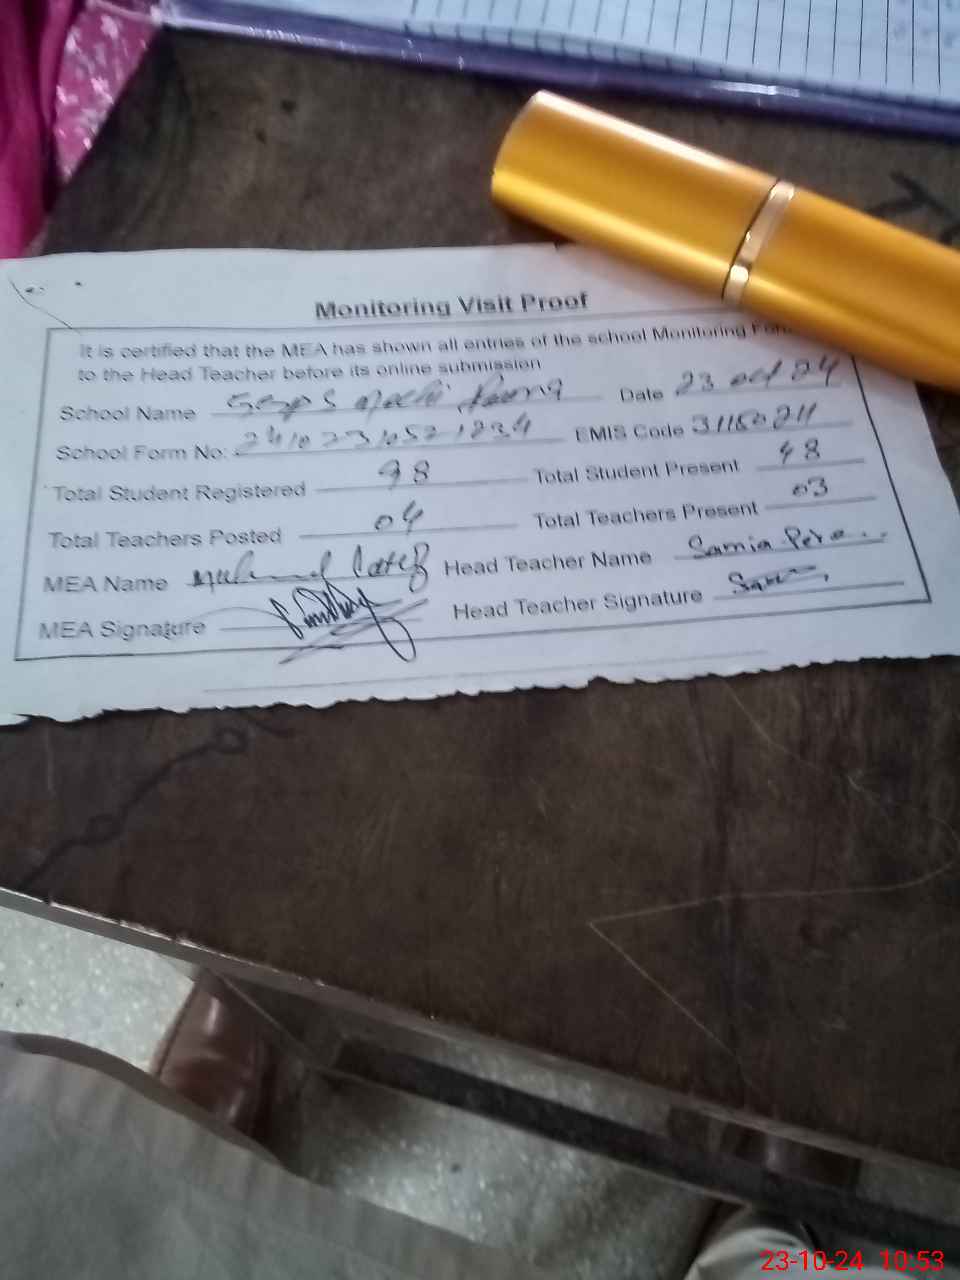 Monitoring Visit Proof
It is certified that the MEA has shown all entries of the school Monitoring
to the Head Teacher before its online submission
School Name Date 23 oct 24
School Form No: EMIS Code
Total Student Registered 98 Total Student Present 48
Total Teachers Posted 04 Total Teachers Present 03
MEA Name Head Teacher Name Samia
MEA Signature Head Teacher Signature
23-10-24 10:53